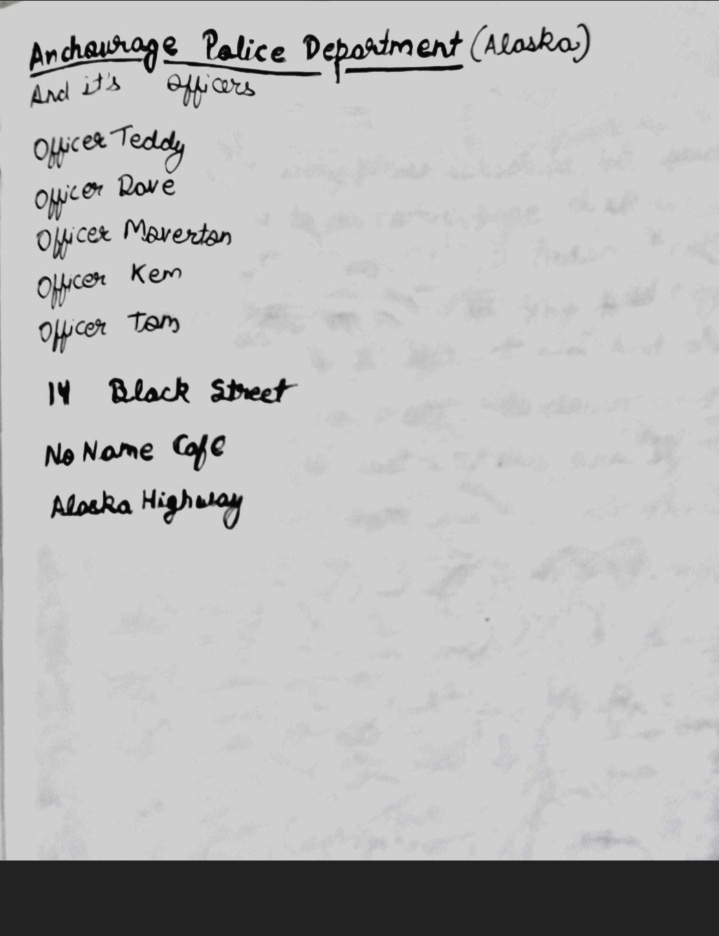 Anchourage Police Department (Alaska)
And it's officers
Officer Teddy
Officer Dave
Officer Maverton
Officer Kem
Officer Tom
14 Black Street
No Name Cafe
Alaska Highway